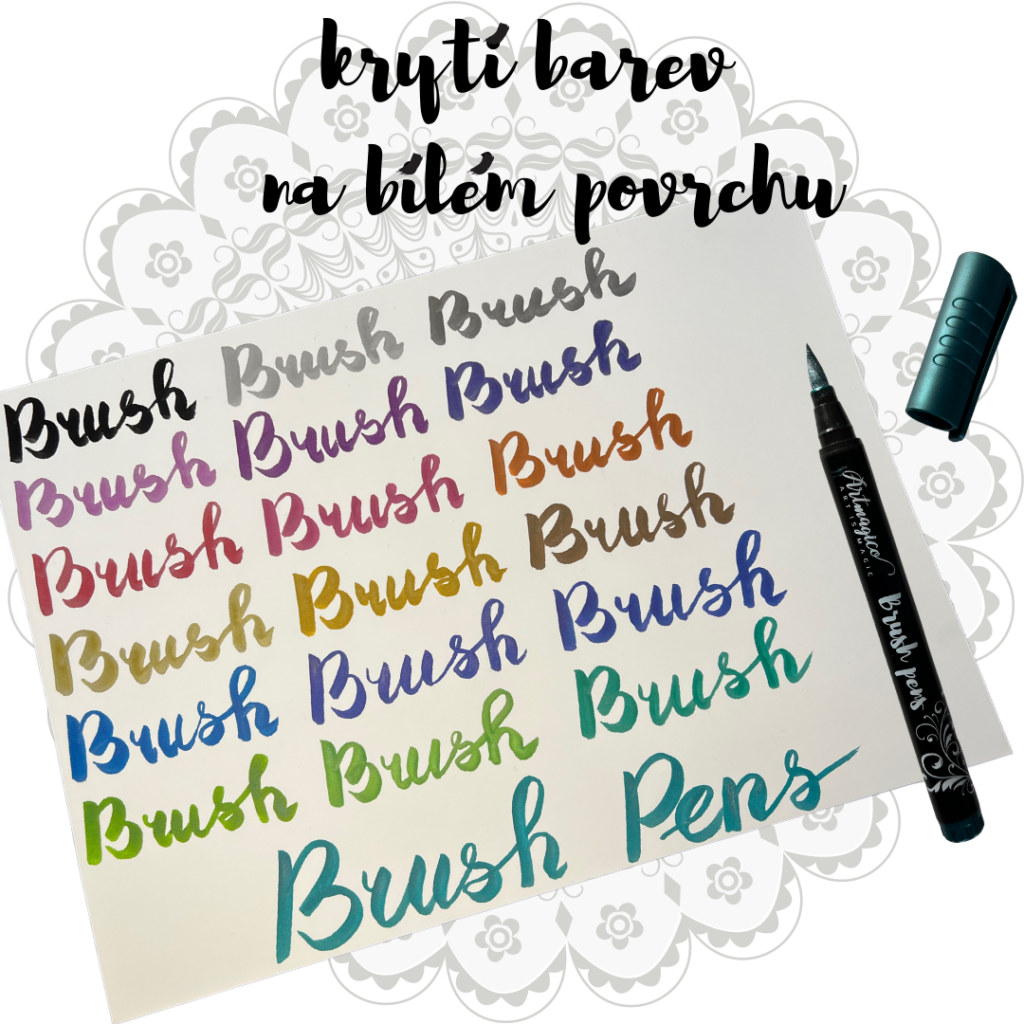 krytí barev
na bílém povrchu
Brush Brush Brush
Brush Brush Brush
Brush Brush Brush
Brush Brush Brush
Brush Brush Brush
Brush Brush Brush
Brush Pens
Artmagico
ART IS MAGIC
Brush pens